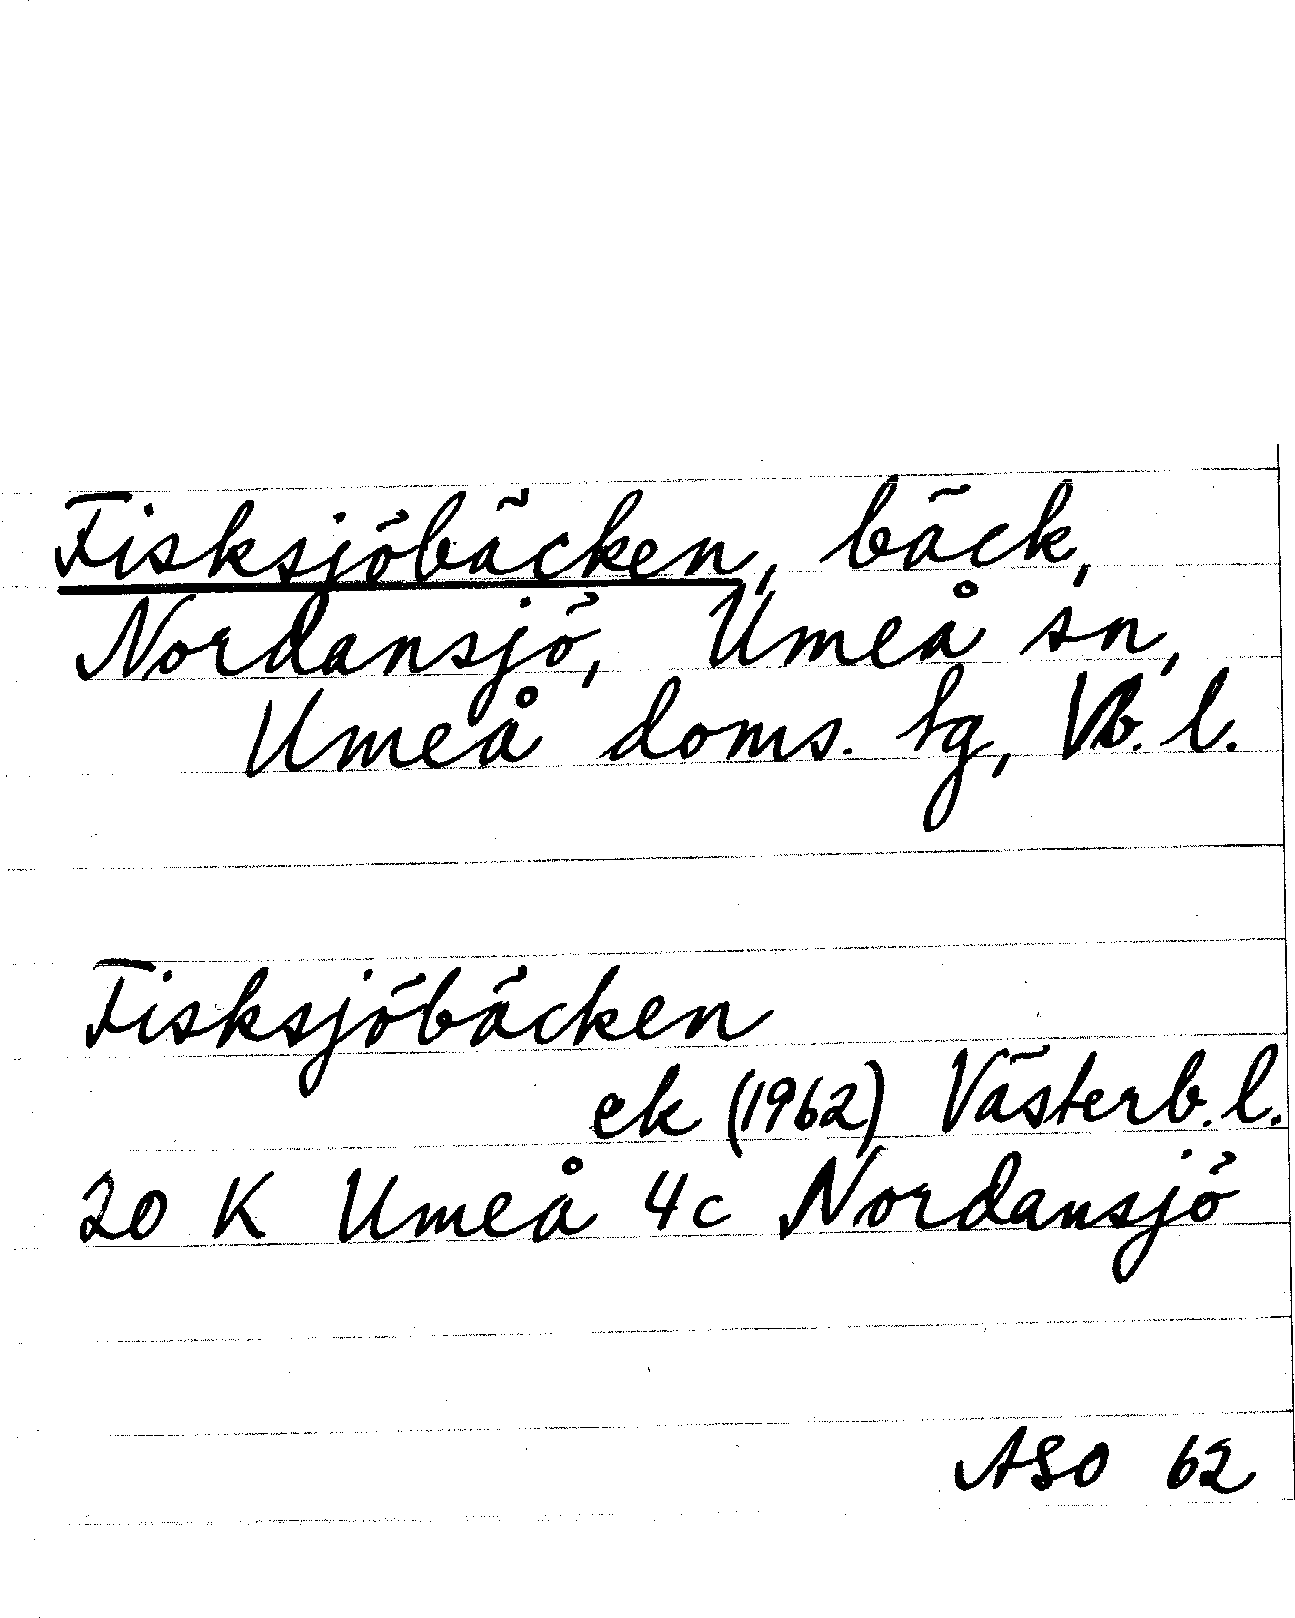 Fisksjöbäcken, bäck,
Nordansjö, Umeå sn,
Umeå doms. tg, Vb. l.
Fisksjöbäcken
ek (1962) Västerb. l.
20 K Umeå 4c Nordansjö
ASO 62